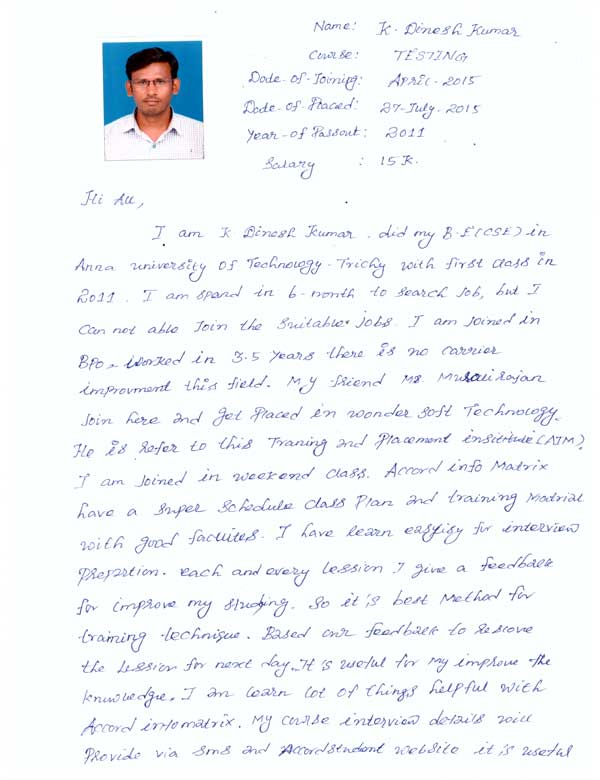 Name: K. Dinesh Kumar
Course: TESTING
Dode-of-Joining: April-2015
Dode-of-Placed: 27-July-2015
Year-of-Passout: 2011
Salary : 15 K.
Hi All,
I am K Dinesh Kumar. did my B.E(CSE) in
Anna university Of Technology-Trichy with first class in
2011. I am spend in 6-month to search Job, but I
Can not able Join the Suitable Jobs. I am Joined in
BPO, worked in 3.5 years there is no carrier
improvment this field. My friend Mr. Muralirajan
Join here and get Placed in wonder soft Technology.
He is Refer to this Traning and Placement institute (AIM).
I am Joined in weekend class. Accord info Matrix
have a super Schedule class Plan and training Matrial
with good facilites. I have learn easyisy for interview
Prepartion. each and every lession I give a feedback
for improve my studying. So it is best Method for
training technique. Based our feedback to
the lession for next day. It is useful for my improve the
knowledge. I am learn lot of things helpful with
Accord infomatrix. My course interview details will
Provide via sms and Accordstudent website it is useful